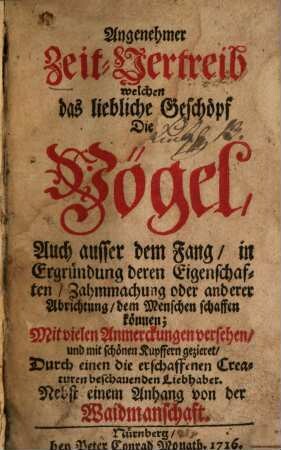 Angenehmer
Zeit-Vertreib
welchen
das liebliche Geschöpf
Die
Vögel,
Auch ausser dem Fang / in
Ergründung deren Eigenschaff-
ten / Zahmmachung oder anderer
Abrichtung / dem Menschen schaffen
können;
Mit vielen Anmerckungen versehen /
und mit schönen Kupffern gezieret /
Durch einen die erschaffenen Crea-
turen beschauenden Liebhaber.
Nebst einem Anhang von der
Waidmanschafft.
Nürnberg /
bey Peter Conrad Monath. 1716.